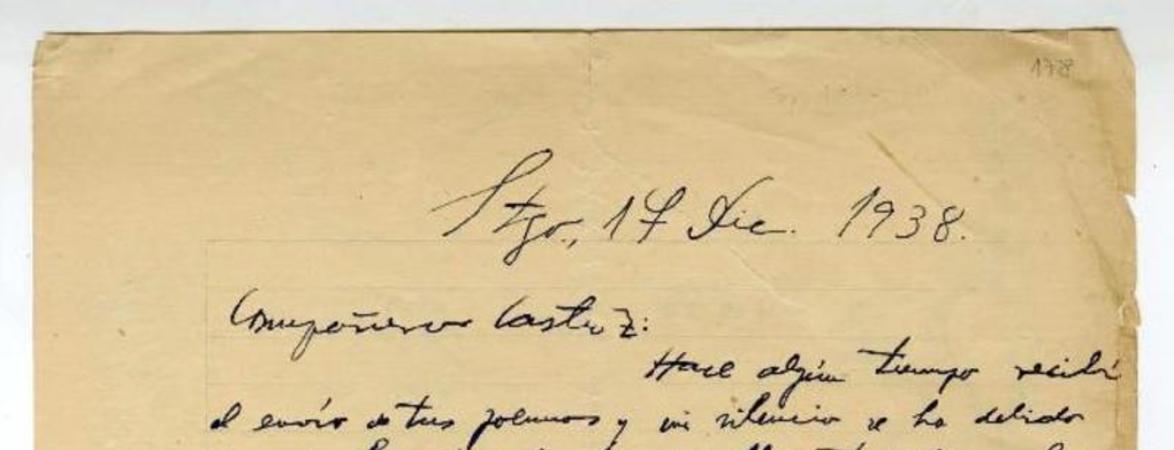 1938
Stgo., 17 Dic. 1938.
Compañero Castro Z:
Hace algún tiempo recibí
el envío de tus poemas y mi silencio se ha debido